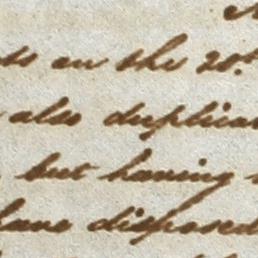 on the 20th
also duplica
but having
have disposed